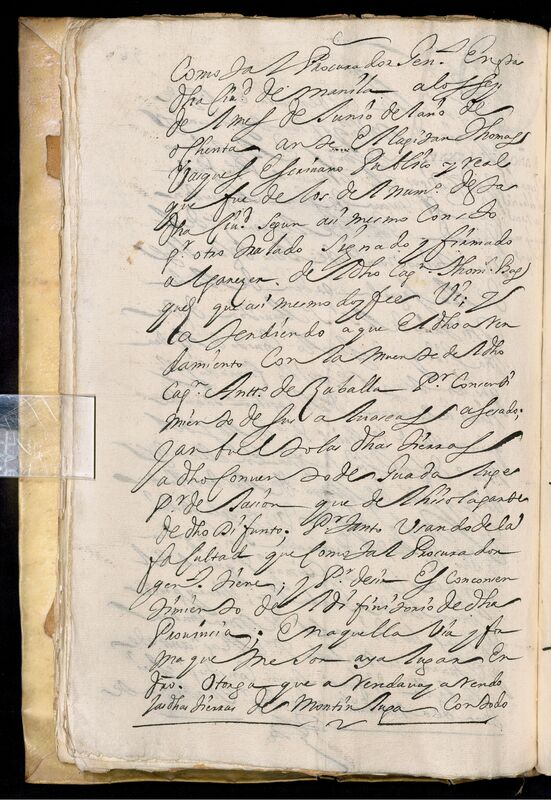 Como tal Procurador Gen.l En esta
dha Ciu.d de manila a los seis
de el mes de Junio de el año de
ochenta ante el Capitan Thomas
Vasques Escrivano Publico y real
que fue de los del num.o desta
dha Ciu.d segun asi mesmo Consto
p.r otro tratado signado y firmado
a lo pareser de el dho Cap.n Thom.s Bas
ques que asi mesmo doy fee Vi; y
atendiendo a que el dho arren
damiento Con la muerte de el dho
Cap.n Antt.o de Zaballa P.r Consenti
miento de sus albaceas a sesado;
dhas tierras
a dho Convento de Guadalupe
P.r
de dho Difunto. P.r tanto Usando de la
facultad que Como tal Procurador
gen.l tiene; y P.r desir Es Con consen
timiento de el Difinitorio de dha
Provincia; En aquella Via y for
ma que mejor aya lugar En
dro. Otorga que arrendava y arrendo
las dhas tierras de Montinlupa Con todo